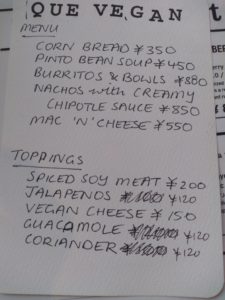 QUE VEGAN
MENU
CORN BREAD ¥350
PINTO BEAN SOUP ¥450
BURRITOS & BOWLS ¥880
NACHOS with CREAMY
CHIPOTLE SAUCE ¥850
MAC 'N' CHEESE ¥550
TOPPINGS
SPICED SOY MEAT ¥200
JALAPENOS ¥120
VEGAN CHEESE ¥150
GUACAMOLE ¥120
CORIANDER ¥120